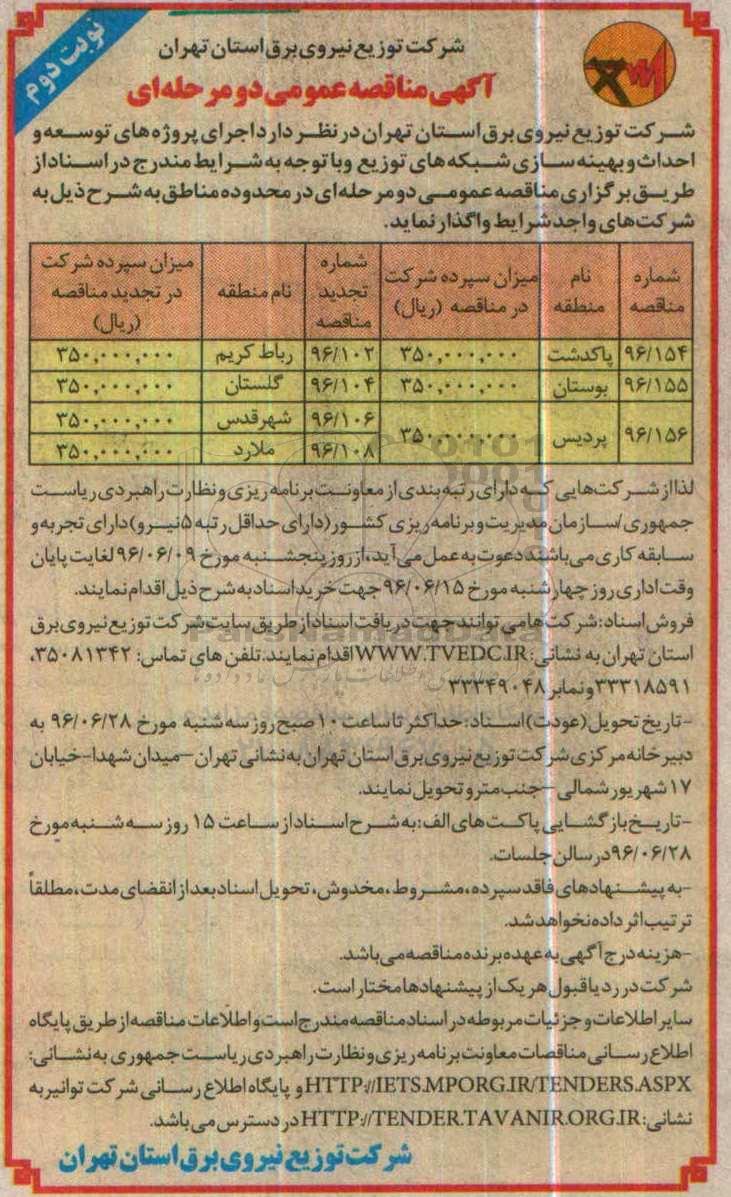 نوبت دوم
شرکت توزیع نیروی برق استان تهران
آگهی مناقصه عمومی دو مرحله‌ای
شرکت توزیع نیروی برق استان تهران در نظر دارد اجرای پروژه های توسعه و
احداث و بهینه سازی شبکه های توزیع و با توجه به شرایط مندرج در اسناد از
طریق برگزاری مناقصه عمومی دو مرحله‌ای در محدوده مناطق به شرح ذیل به
شرکت‌های واجد شرایط واگذار نماید.
شماره مناقصه | نام منطقه | میزان سپرده شرکت در مناقصه (ریال) | شماره تجدید مناقصه | نام منطقه | میزان سپرده شرکت در تجدید مناقصه (ریال)
۹۶/۱۵۴ | پاکدشت | ۳۵۰,۰۰۰,۰۰۰ | ۹۶/۱۰۲ | رباط کریم | ۳۵۰,۰۰۰,۰۰۰
۹۶/۱۵۵ | بوستان | ۳۵۰,۰۰۰,۰۰۰ | ۹۶/۱۰۴ | گلستان | ۳۵۰,۰۰۰,۰۰۰
۹۶/۱۵۶ | پردیس | ۳۵۰,۰۰۰,۰۰۰ | ۹۶/۱۰۶ | شهرقدس | ۳۵۰,۰۰۰,۰۰۰
۹۶/۱۰۸ | ملارد | ۳۵۰,۰۰۰,۰۰۰
لذا از شرکت‌هایی که دارای رتبه بندی از معاونت برنامه ریزی و نظارت راهبردی ریاست
جمهوری/سازمان مدیریت و برنامه ریزی کشور (دارای حداقل رتبه ۵ نیرو) دارای تجربه و
سابقه کاری می‌باشند دعوت به عمل می آید، از روز پنجشنبه مورخ ۹۶/۰۶/۰۹ لغایت پایان
وقت اداری روز چهارشنبه مورخ ۹۶/۰۶/۱۵ جهت خرید اسناد به شرح ذیل اقدام نمایند.
فروش اسناد: شرکت ها می توانند جهت دریافت اسناد از طریق سایت شرکت توزیع نیروی برق
استان تهران به نشانی: WWW.TVEDC.IR اقدام نمایند. تلفن های تماس: ۳۵۰۸۱۳۴۲،
۳۳۳۱۸۵۹۱ و نمابر ۳۳۳۴۹۰۴۸
-تاریخ تحویل (عودت) اسناد: حداکثر تا ساعت ۱۰ صبح روز سه شنبه مورخ ۹۶/۰۶/۲۸ به
دبیرخانه مرکزی شرکت توزیع نیروی برق استان تهران به نشانی تهران -میدان شهدا-خیابان
۱۷ شهریور شمالی -جنب مترو تحویل نمایند.
-تاریخ بازگشایی پاکت های الف: به شرح اسناد از ساعت ۱۵ روز سه شنبه مورخ
۹۶/۰۶/۲۸ در سالن جلسات.
-به پیشنهادهای فاقد سپرده، مشروط، مخدوش، تحویل اسناد بعد از انقضای مدت، مطلقاً
ترتیب اثر داده نخواهد شد.
-هزینه درج آگهی به عهده برنده مناقصه می باشد.
شرکت در رد یا قبول هر یک از پیشنهادها مختار است.
سایر اطلاعات و جزئیات مربوطه در اسناد مناقصه مندرج است و اطلاعات مناقصه از طریق پایگاه
اطلاع رسانی مناقصات معاونت برنامه ریزی و نظارت راهبردی ریاست جمهوری به نشانی:
HTTP://IETS.MPORG.IR/TENDERS.ASPX و پایگاه اطلاع رسانی شرکت توانیر به
نشانی: HTTP://TENDER.TAVANIR.ORG.IR در دسترس می باشد.
شرکت توزیع نیروی برق استان تهران